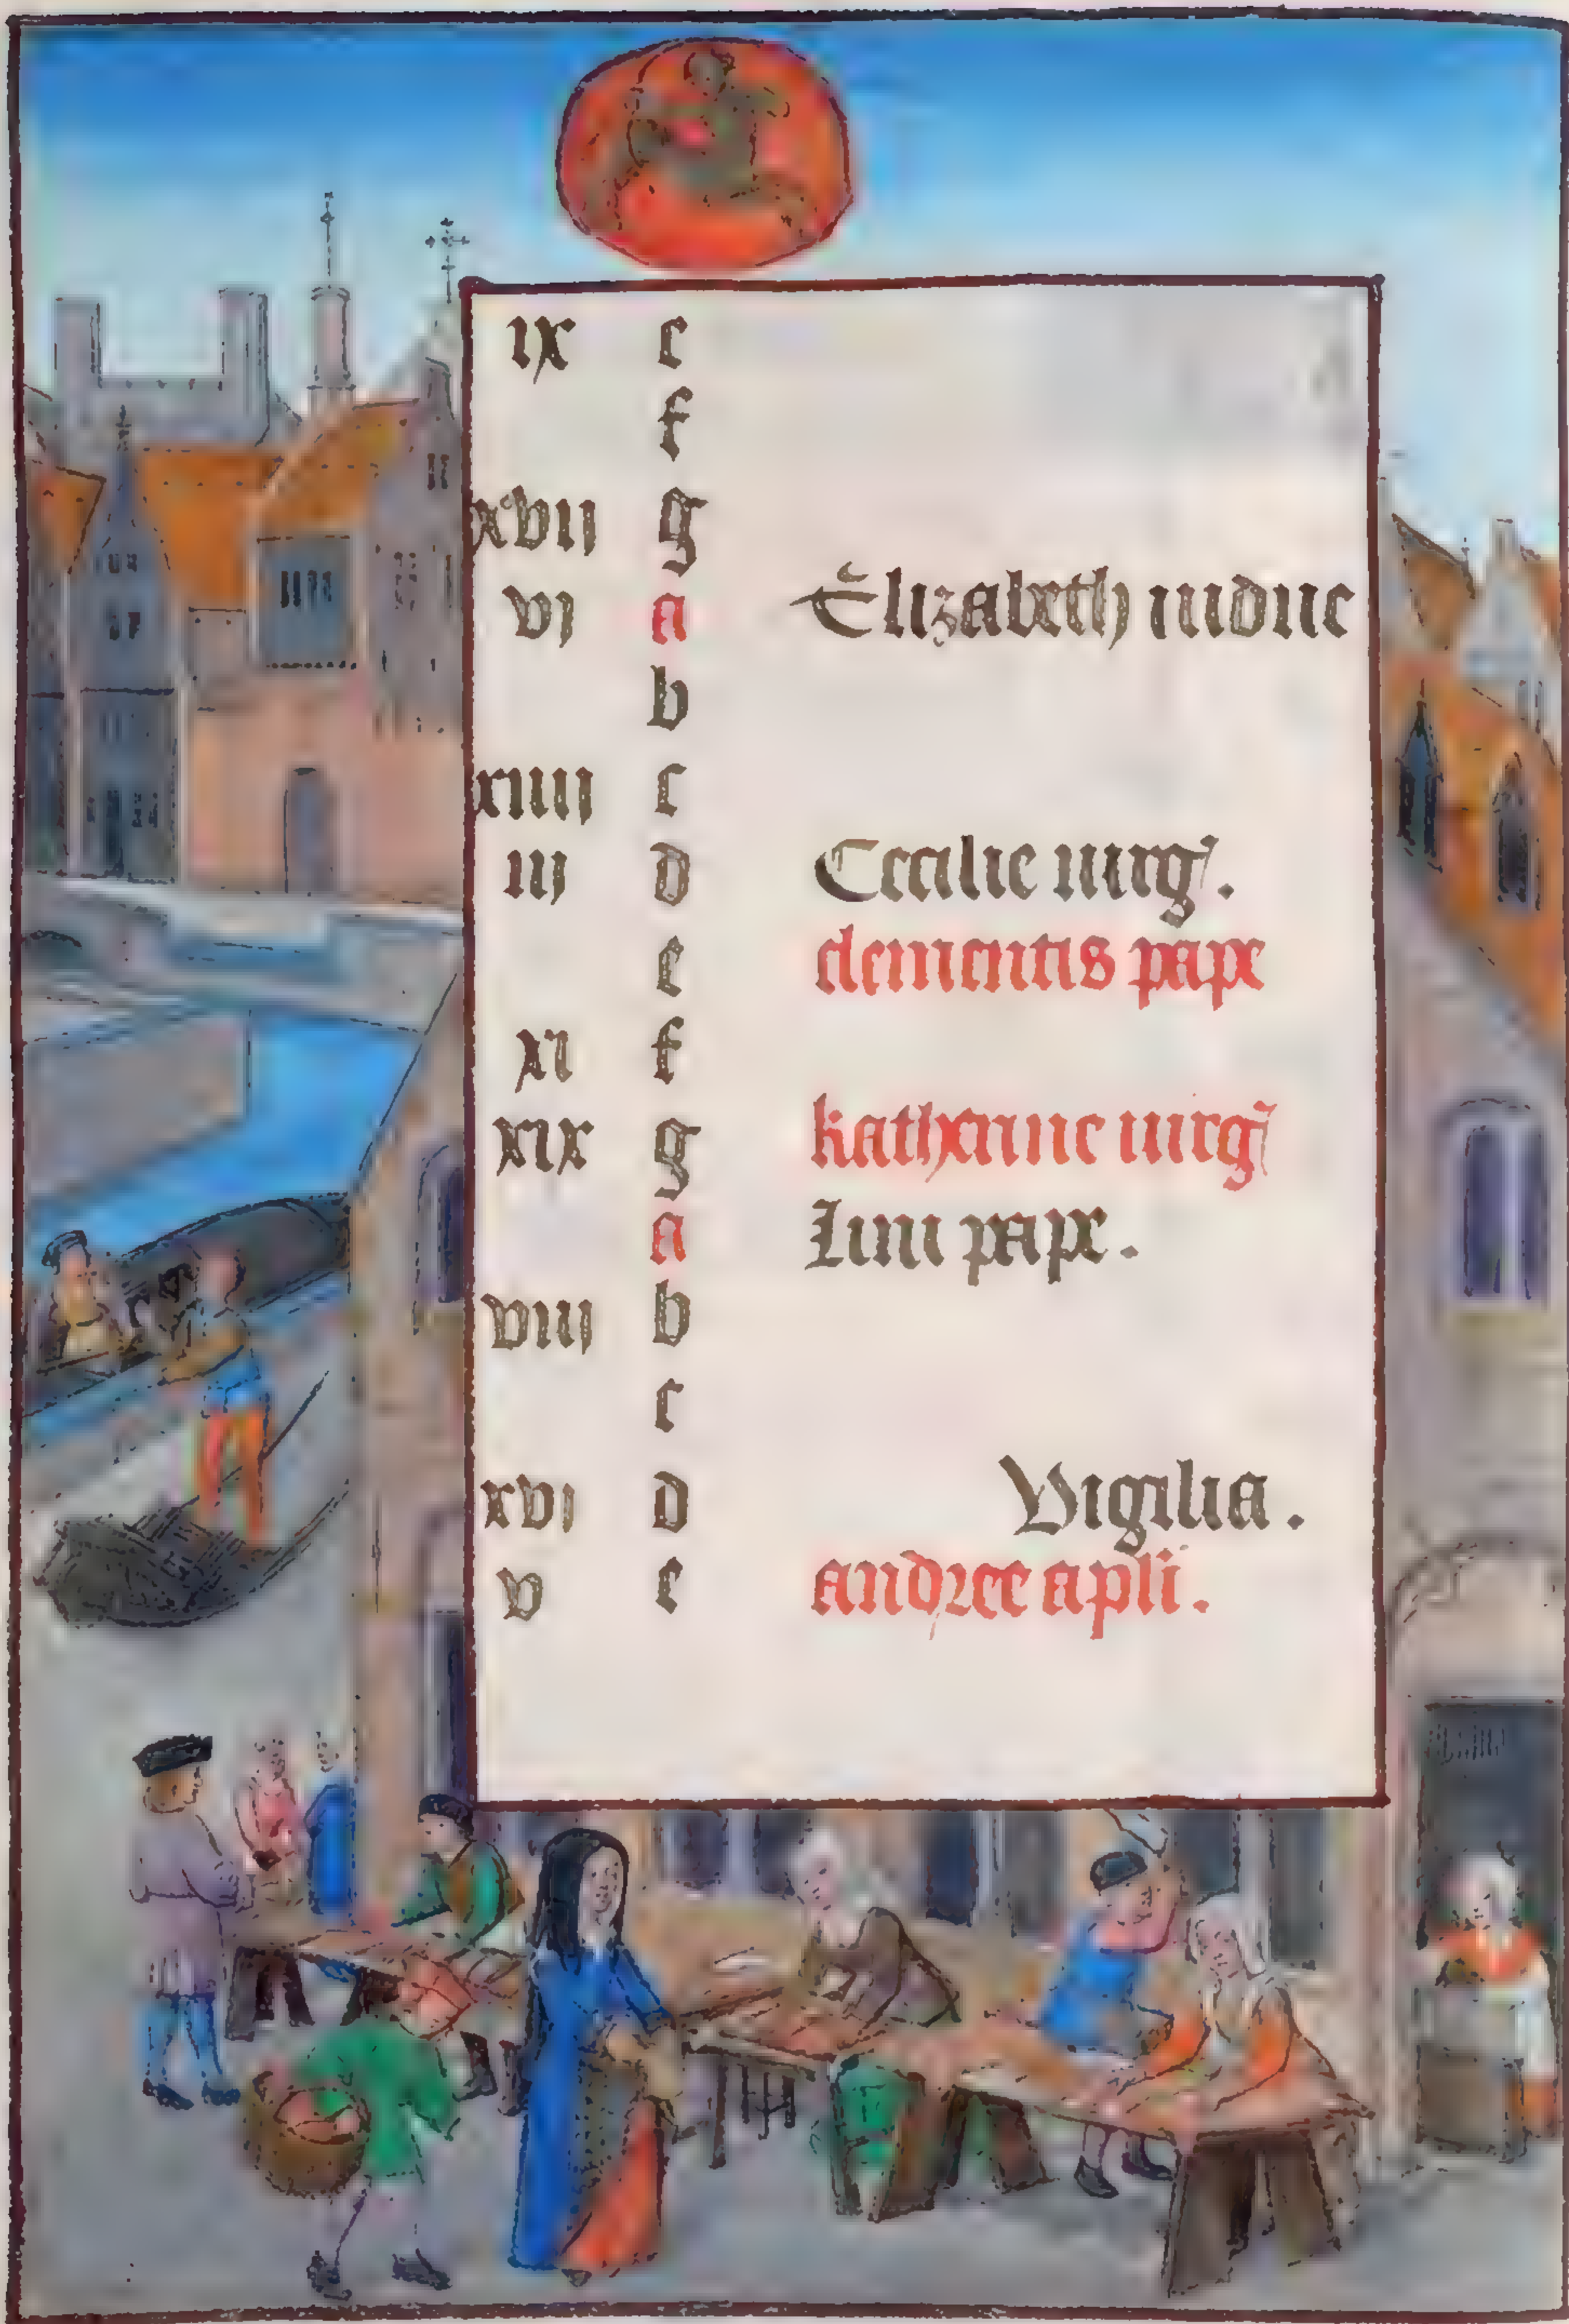 ix e
f
xvii g
vi a Elizabeth uidue
b
xiiii c
iii d Cecilie uirg.
e clementis pape
xi f
xix g katherine uirg
a Lini pape.
viii b
c
xvi d Vigilia.
v e andree apli.